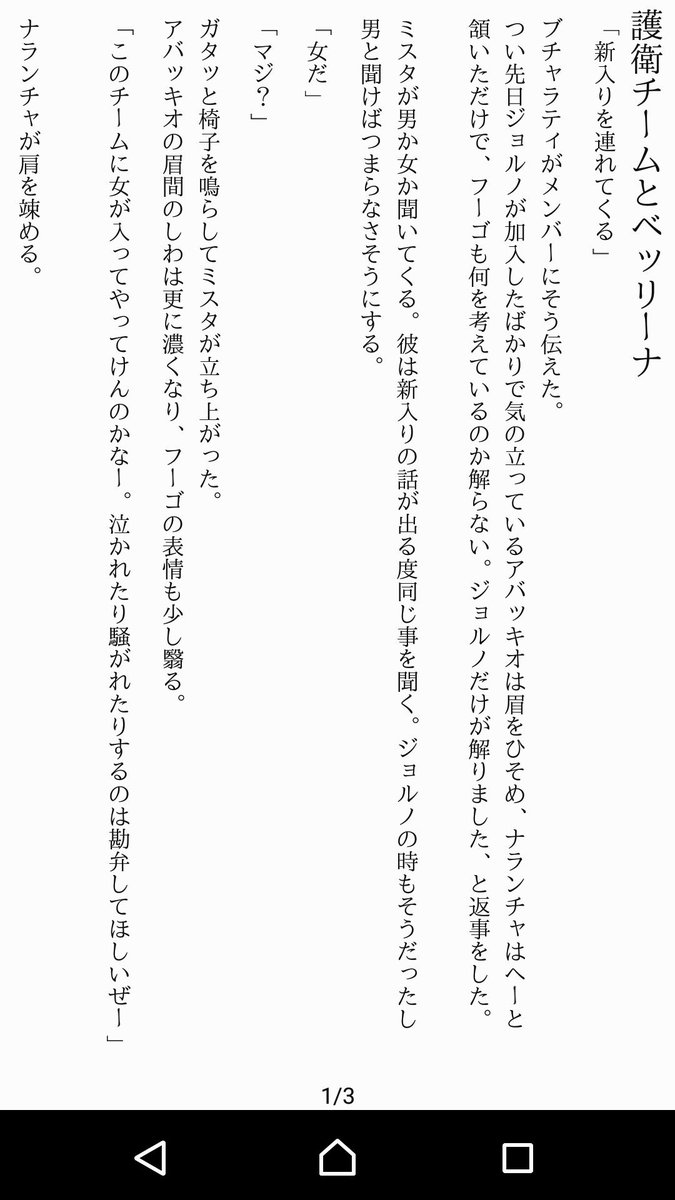 護衛チームとベッリーナ
「新入りを連れてくる」
ブチャラティがメンバーにそう伝えた。
つい先日ジョルノが加入したばかりで気の立っているアバッキオは眉をひそめ、ナランチャはへーと
頷いただけで、フーゴも何を考えているのか解らない。ジョルノだけが解りました、と返事をした。
ミスタが男か女か聞いてくる。彼は新入りの話が出る度同じ事を聞く。ジョルノの時もそうだったし
男と聞けばつまらなさそうにする。
「女だ」
「マジ？」
ガタッと椅子を鳴らしてミスタが立ち上がった。
アバッキオの眉間のしわは更に濃くなり、フーゴの表情も少し翳る。
「このチームに女が入ってやってけんのかなー。泣かれたり騒がれたりするのは勘弁してほしいぜー」
ナランチャが肩を竦める。
1/3